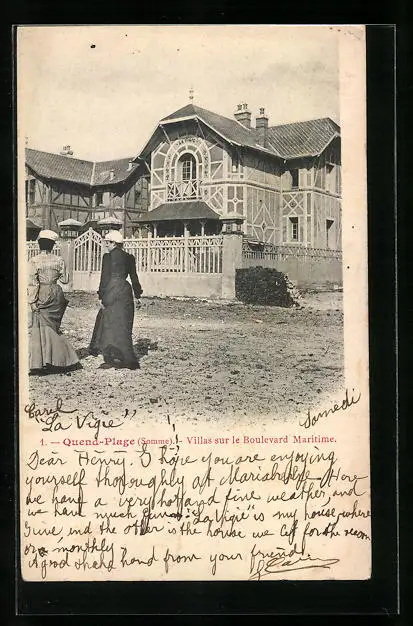 "La Vigie"
Samedi
1. — Quend-Plage (Somme). — Villas sur le Boulevard Maritime.
Dear Henry. I hope you are enjoying
yourself thoroughly at Here
we have a very hot and fine weather, and
we have much "La Vigie" is my house where
I live, and the other is the house we let for the
or a monthly
A good shake hand from your friend